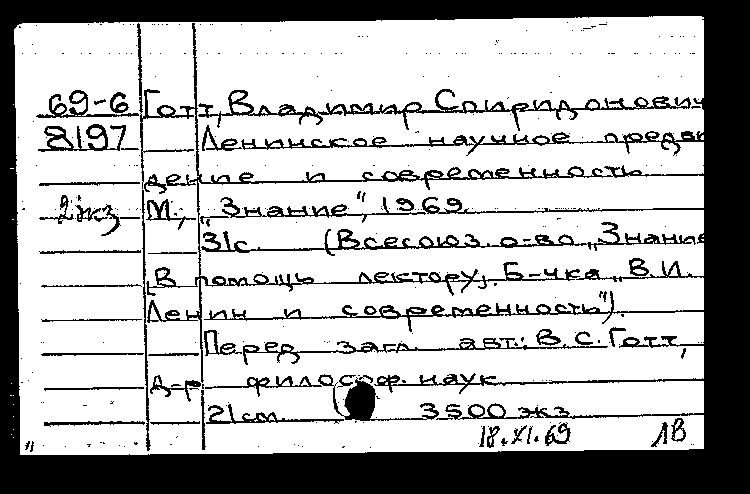 69-6 Готт, Владимир Спиридонович
8197 Ленинское научное предви
дение и современность
2 экз М., „Знание", 1969.
31с. (Всесоюз. о-во „Знание
[В помощь лектору]. Б-чка „В.И.
Ленин и современность").
Перед загл. авт.: В.С. Готт,
д-р философ. наук
21см. 3500 экз
18.XI.69 1В